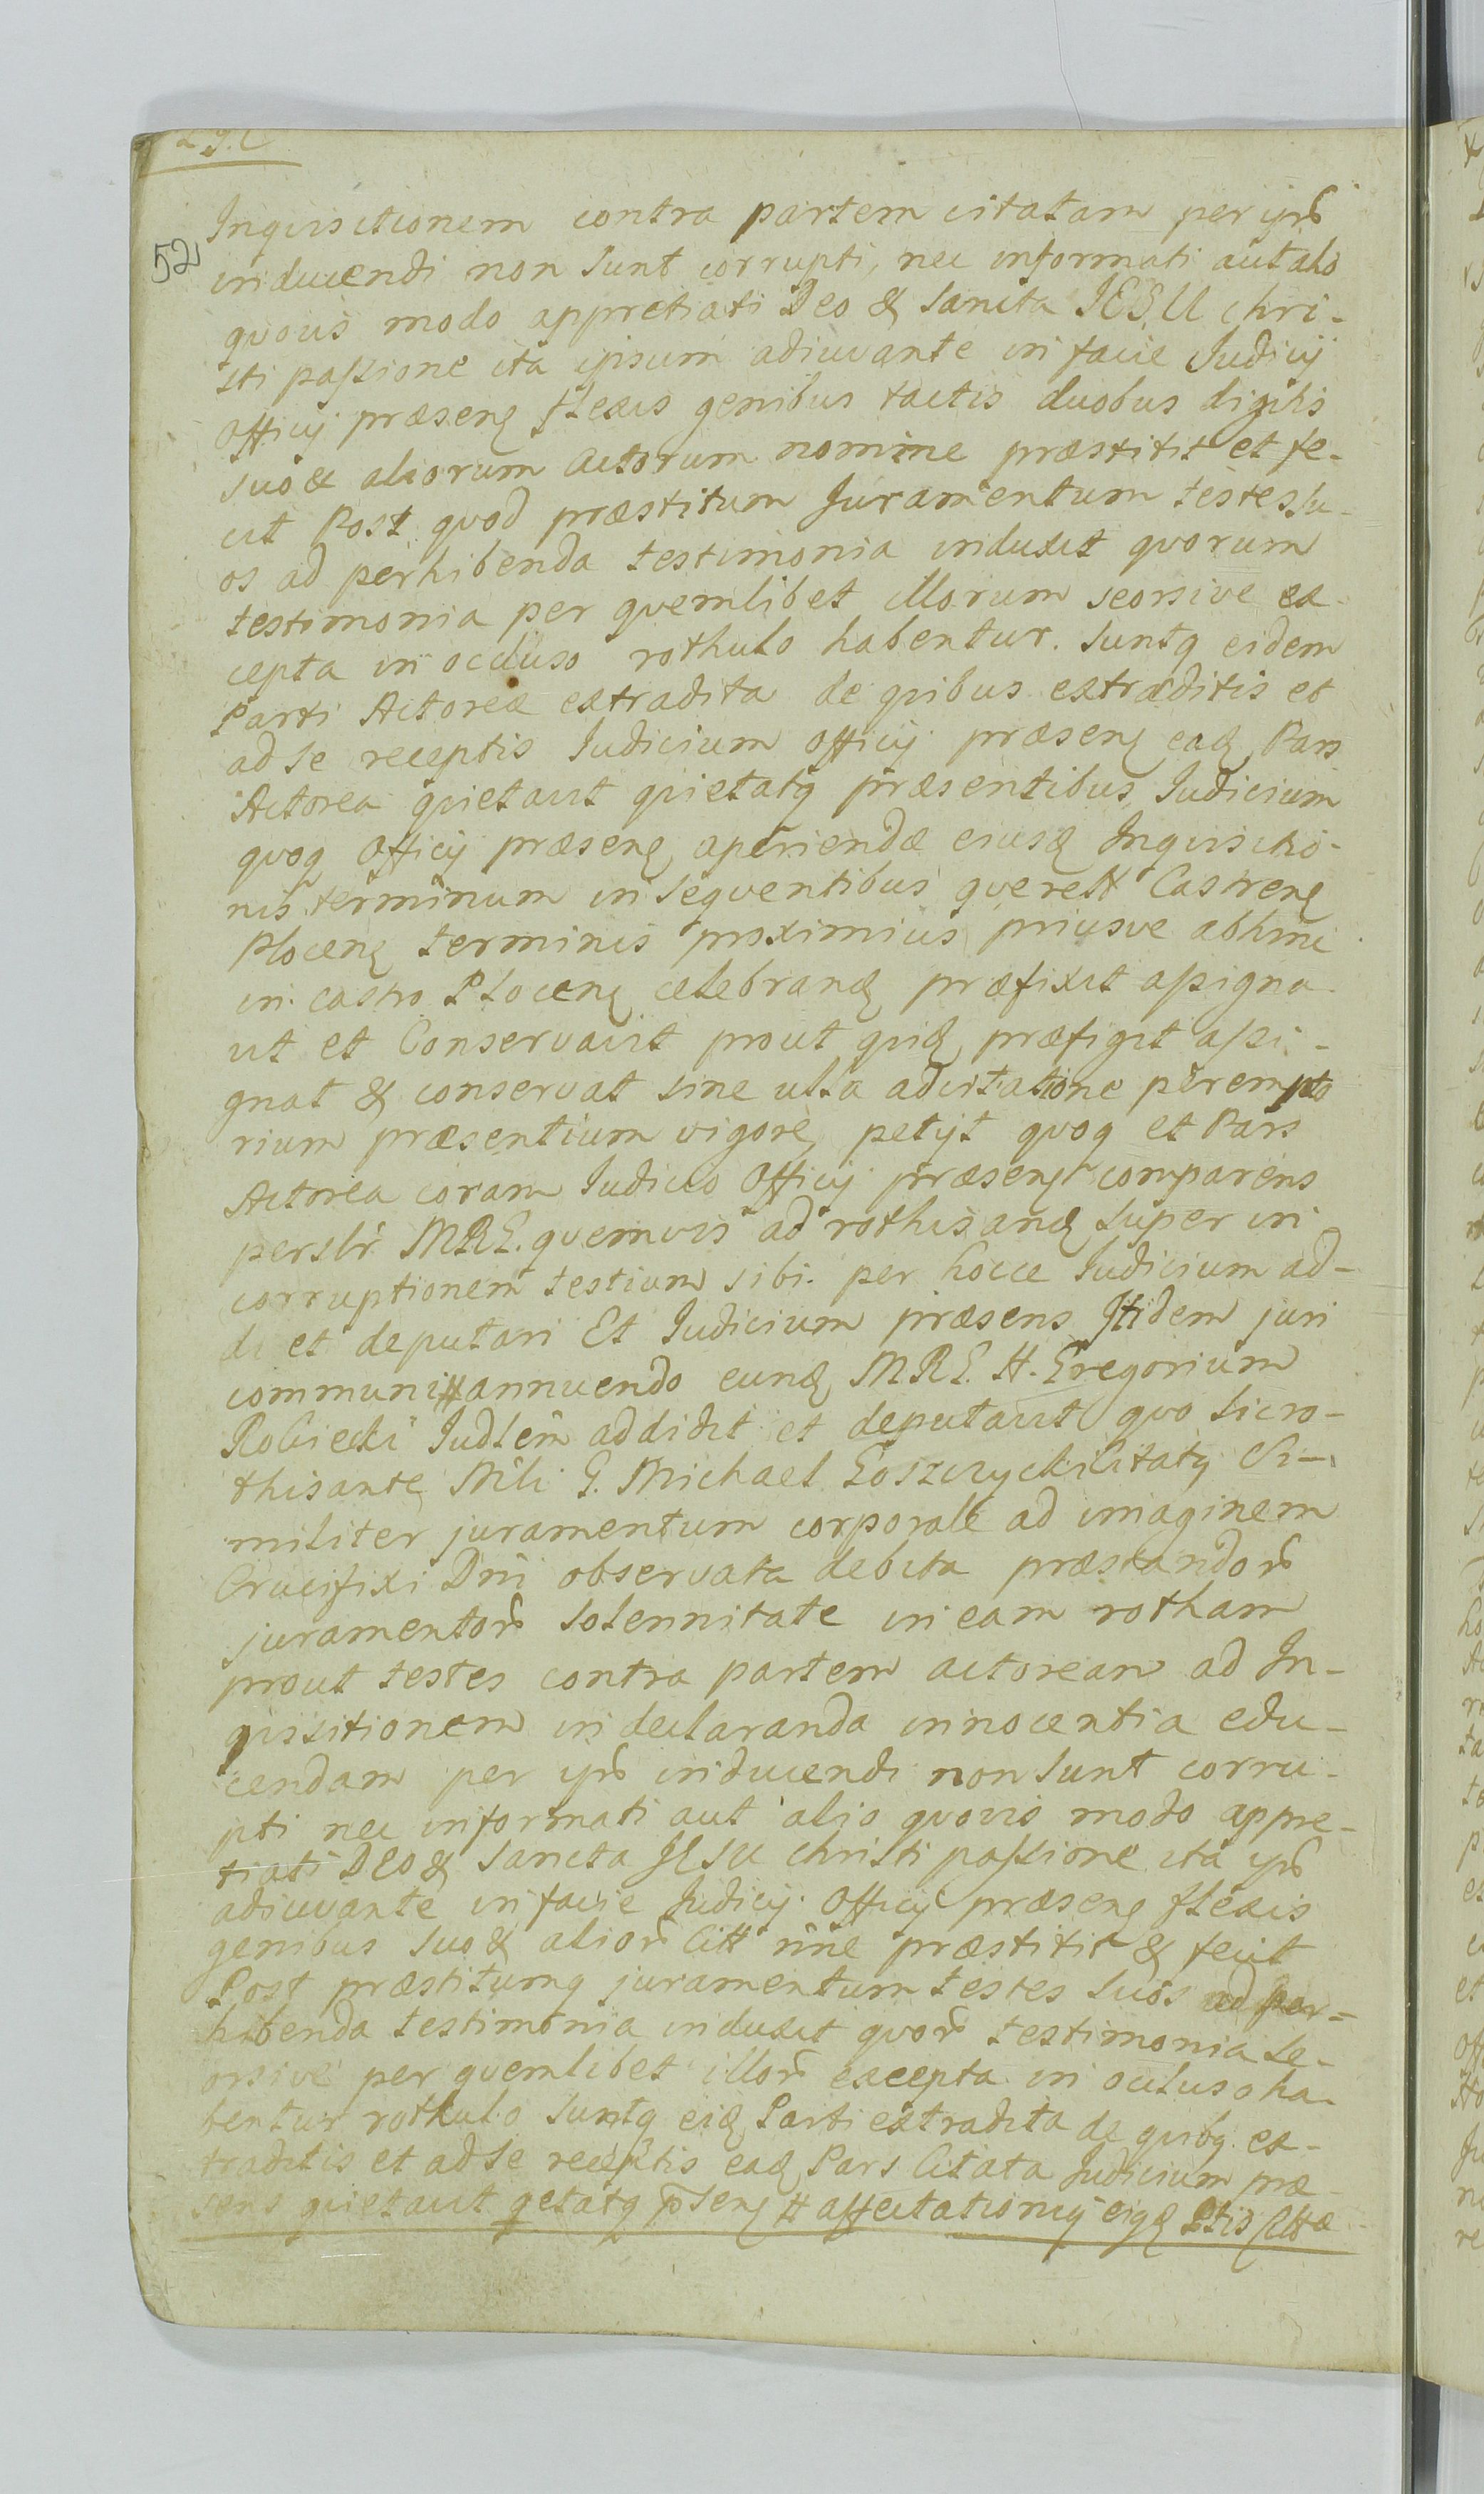 52
Inquisitionem contra partem citatam per ipm̃
inducendi non sunt corrupti, nec informati aut alio
quovis modo appretiati Deo & Sancta IESU Chri-
sti passione ita ipsum adiuvante in facie Judicij
Officij præsenę flexis genibus tactis duobus digitis
suo & aliorum Actorum nomine præstitit et fe-
cit Post quod præstitum Juramentum testes su-
os ad perhibenda testimonia induxit quorum
testimonia per quemlibet illorum seorsive ex-
cepta in occluso rothulo habentur. Suntq eidem
Parti Actoreæ extradita de quibus extraditis et
ad se receptis Iudicium Officij præsenę eaḑ Pars
Actorea quietavit quietatq præsentibus, Iudicium
quoq Officij præsenę aperiendæ eiusḑ Inquisitio-
nis terminum in sequentibus querell Castrenę
Plocenę terminis proximius priusve abhinc
in castro Plocenę celebranḑ præfixit assigna-
vit et Conservavit prout quiḑ præfigit assi-
gnat & conservat sine ulla adcitatione perempto
rium præsentium vigore, petijt quoq et Pars
Actorea coram Iudicio Officij præsenę comparens
persltr MRG. quemvis ad rothisanḑ super in
corruptionem testium sibi per hocce Iudicium ad-
di et deputari Et Iudicium præsens Itidem juri
communitt annuendo eunḑ MRG. H. Gregorium
Rościecki Judlem addidit et deputavit quo sic ro-
thisante Mli G. Michael Goszczycki Citatq Si-
militer juramentum corporale ad imaginem
Crucifixi Dni observata debita præstandor̃
juramentor̃ solennitate in eam rotham
prout testes contra partem actoream ad In-
quisitionem in declaranda innocentia edu-
cendam per ipm̃ inducendi non sunt corru-
pti nec informati aut alio quovis modo appre-
tiati DEO & Sancta JESU Christi passione ita ipm̃
adiuvante in facie Judicij Officij præsenę flexis
genibus suo & alior̃ Citt nñe præstitit & fecit
Post præstitumq juramentum testes suos ad per-
hibenda testimonia induxit quor̃ testimonia se-
orsive per quemlibet illor̃ excepta in occluso ha-
bentur rothulo suntq eiḑ Parti extradita de quibq ex-
traditis et ad se receptis eaḑ Pars Citata Judicium præ-
sens quietavit qetatq p̃senę tt affectationiq eiqḑ Ptis Cittæ